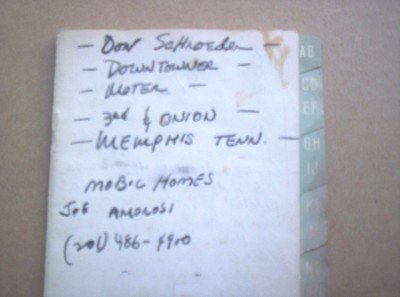 — Don Schroeder —
— DOWNTOWNER —
— MOTEL —
— 3rd & UNION —
— MEMPHIS TENN. —
MOBIL HOMES
JOE AMOROSI
(201) 486-
AB
CD
EF
GH
IJ